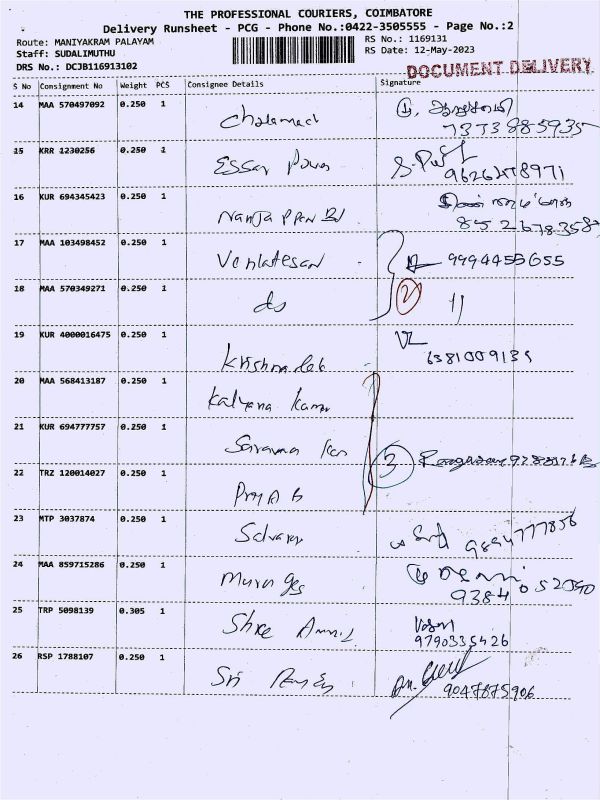 THE PROFESSIONAL COURIERS, COIMBATORE
Delivery Runsheet - PCG - Phone No.:0422-3505555 - Page No.:2
Route: MANIYAKRAM PALAYAM
RS No.: 1169131
Staff: SUDALIMUTHU
RS Date: 12-May-2023
DRS No.: DCJB116913102
DOCUMENT DELIVERY
S No Consignment No Weight PCS Consignee Details Signature
14 MAA 570497092 0.250 1
7373885935
15 KRR 1230256 0.250 1 Essar Power
9626478971
16 KUR 694345423 0.250 1
17 MAA 103498452 0.250 1 Venkatesan 9994455655
18 MAA 570349271 0.250 1 do 2 11
19 KUR 4000016475 0.250 1
6381009139
20 MAA 568413187 0.250 1 Kalyana Kumar
21 KUR 694777757 0.250 1 Saravana 3
22 TRZ 120014027 0.250 1 Priya B
23 MTP 3037874 0.250 1 Selvaraj 9894777856
24 MAA 859715286 0.250 1 Muruges
9384052090
25 TRP 5098139 0.305 1 Shree
9790335426
26 RSP 1788107 0.250 1 Sri
9047875906